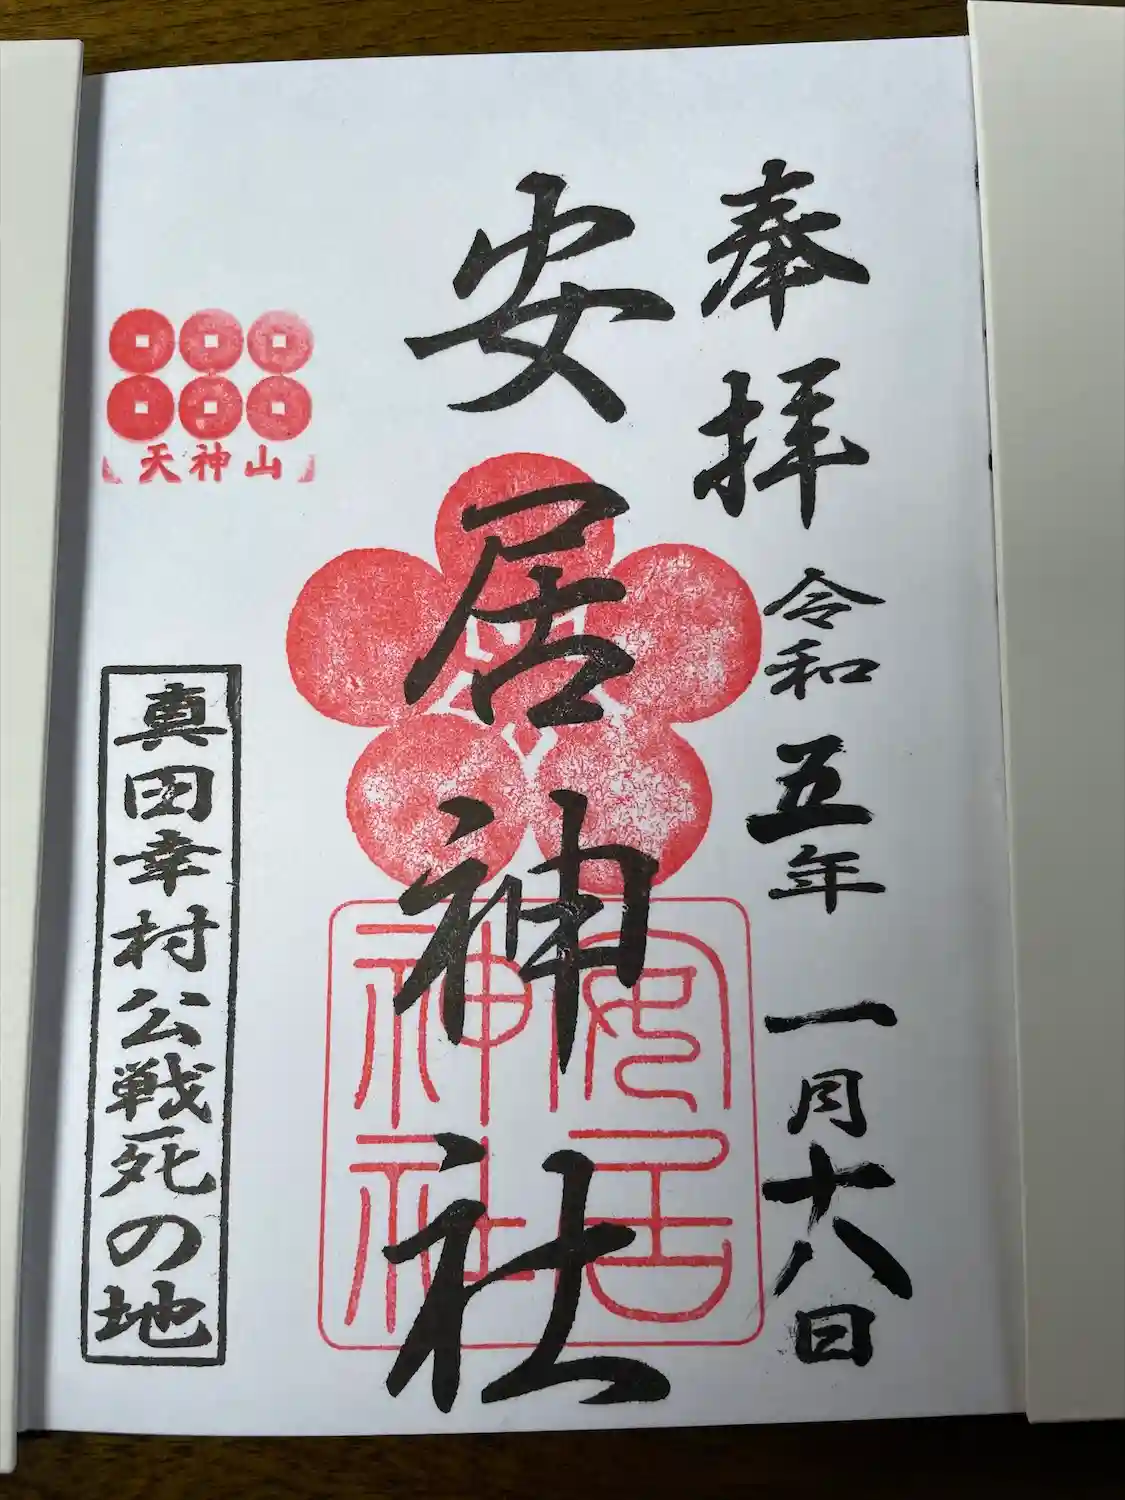 奉拝
令和五年一月十八日
安居神社
安居
神社
天神山
真田幸村公戦死の地